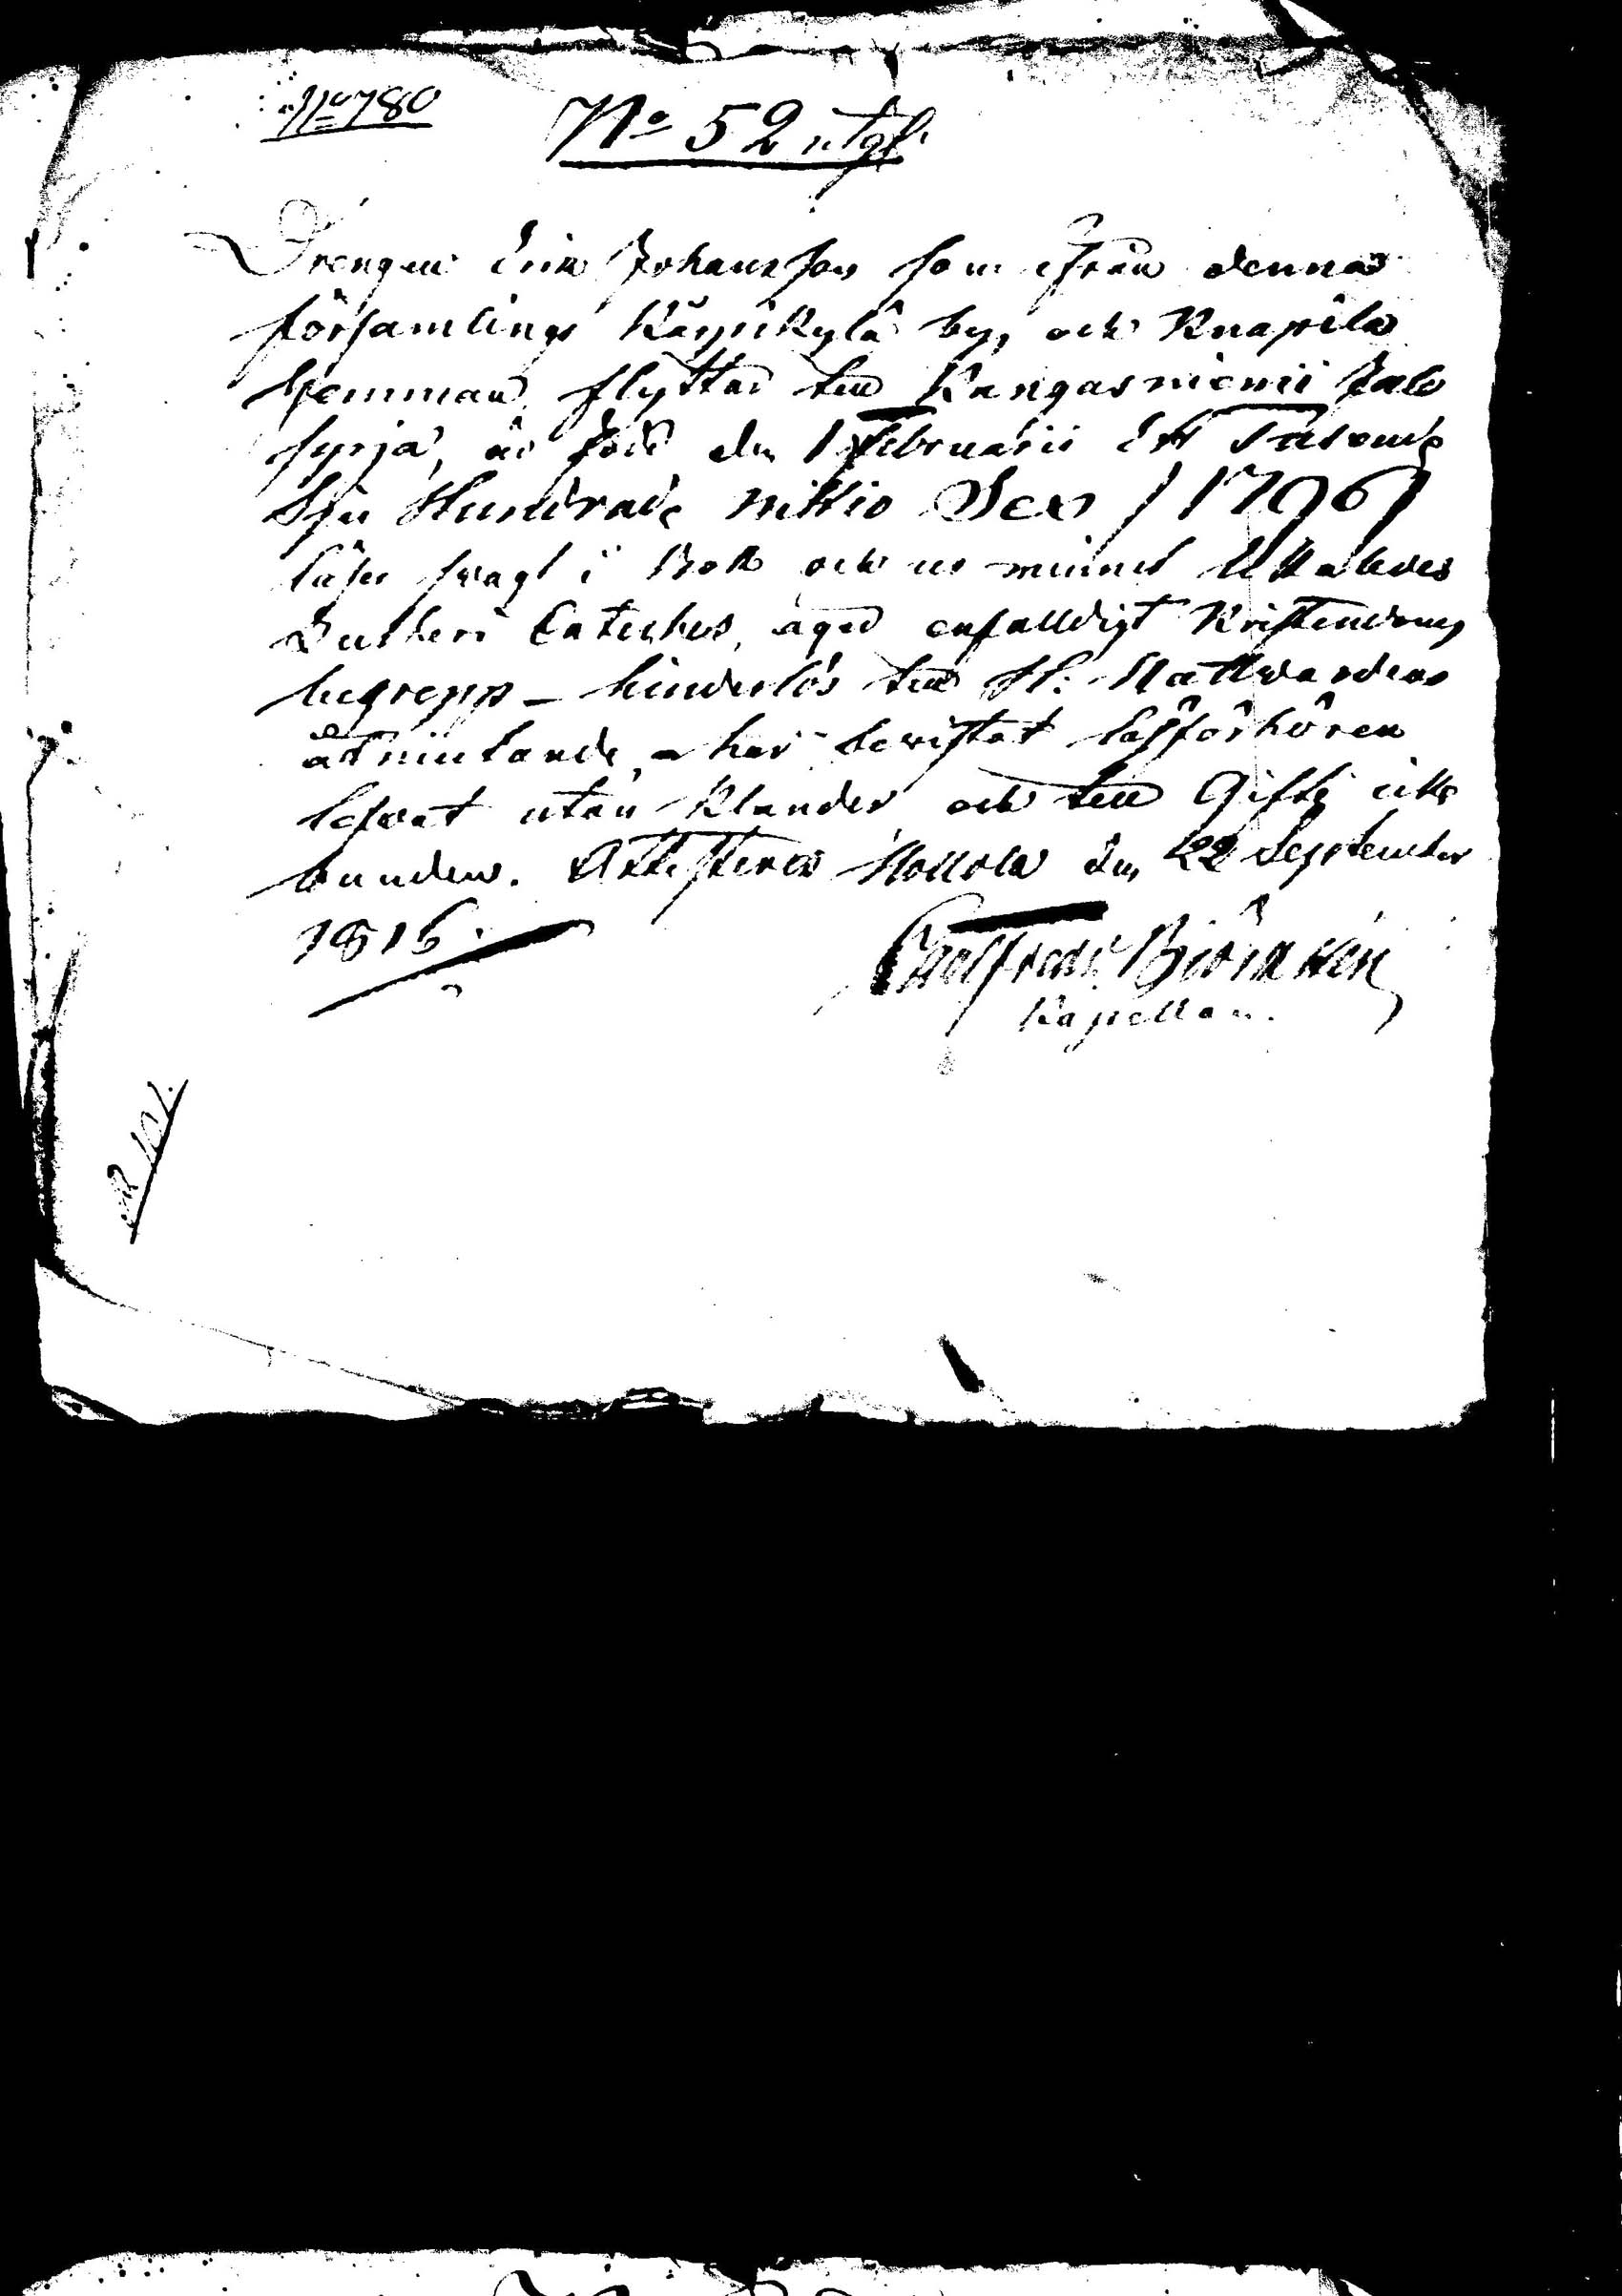 No 780
No 52 utgf.
Drengen Erik Johansson som ifrån denna
församlings Käpickylä by, och Knapila
Hemman, flyttar till Kangasniemi Jalo
syrjä, är född den 1 Februarii Ett Tusende
Sju Hundrade nittio Sex /1796/
läser svagt i Bok och ur minnet
Lutheri Cateches, äger enfalldigt Kristendoms
begrepp – hinderlös till H: Nattvardens
åtniutande, har bevistat Läsförhören
lefvat utan klander och till Gifte icke
bunden. Attesterar Hollola den 22 September
1816.
Björnn
Kapellan.